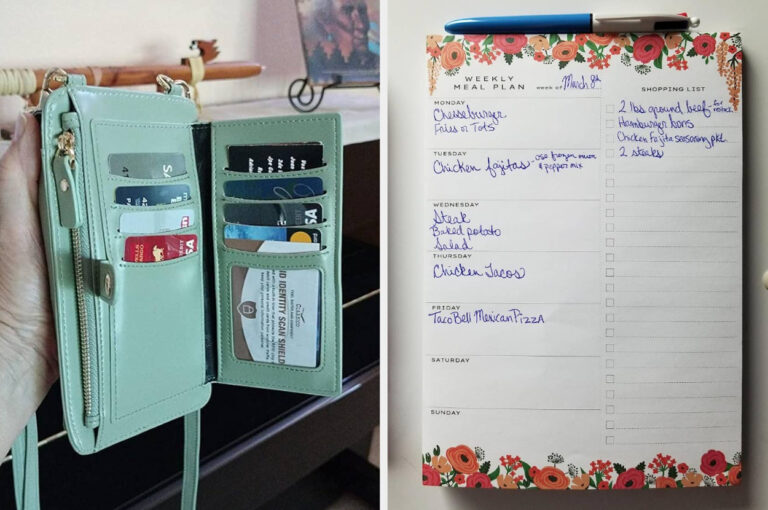 VISA
WELLS
FARGO
DEBIT
VISA
VISA
ID IDENTITY SCAN SHIELD
WEEKLY
MEAL PLAN
WEEK OF March 8th
MONDAY
Cheeseburger
Fries or Tots
TUESDAY
Chicken fajitas - use frozen onion
& pepper mix
WEDNESDAY
Steak
Baked potato
Salad
THURSDAY
Chicken Tacos
FRIDAY
Taco Bell Mexican Pizza
SATURDAY
SUNDAY
SHOPPING LIST
2 lbs ground beef - for
Hamburger buns
Chicken fajita seasoning pkt
2 steaks